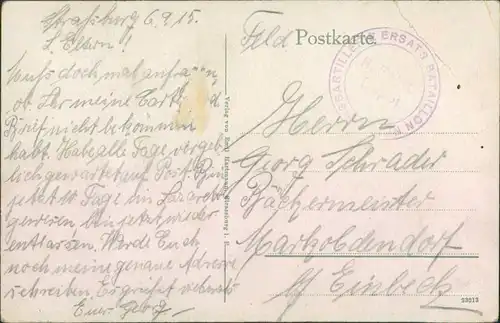 Straßburg 6.9.15.
L. Eltern!
Muß doch mal anfragen
ob Ihr meine Karte und
Brief nicht bekommen
habt. Habe alle Tage vergeb-
lich gewartet auf Post. Bin
jetzt 10 Tage im Lazarett
gewesen bin jetzt wieder
entlassen. Werde Euch
noch meine genaue Adresse
schreiben. Es grüßt vielmals
Euer Georg
Feld Postkarte.
ERSATZ BATAILLON
Verlag von
Straßburg i. E.
Herrn
Georg Schrader
Bäckermeister
Markoldendorf
b/ Einbeck